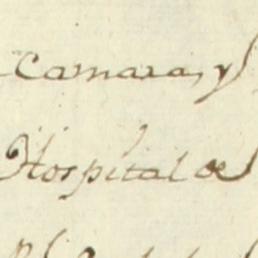 Camara, y
Hospital de